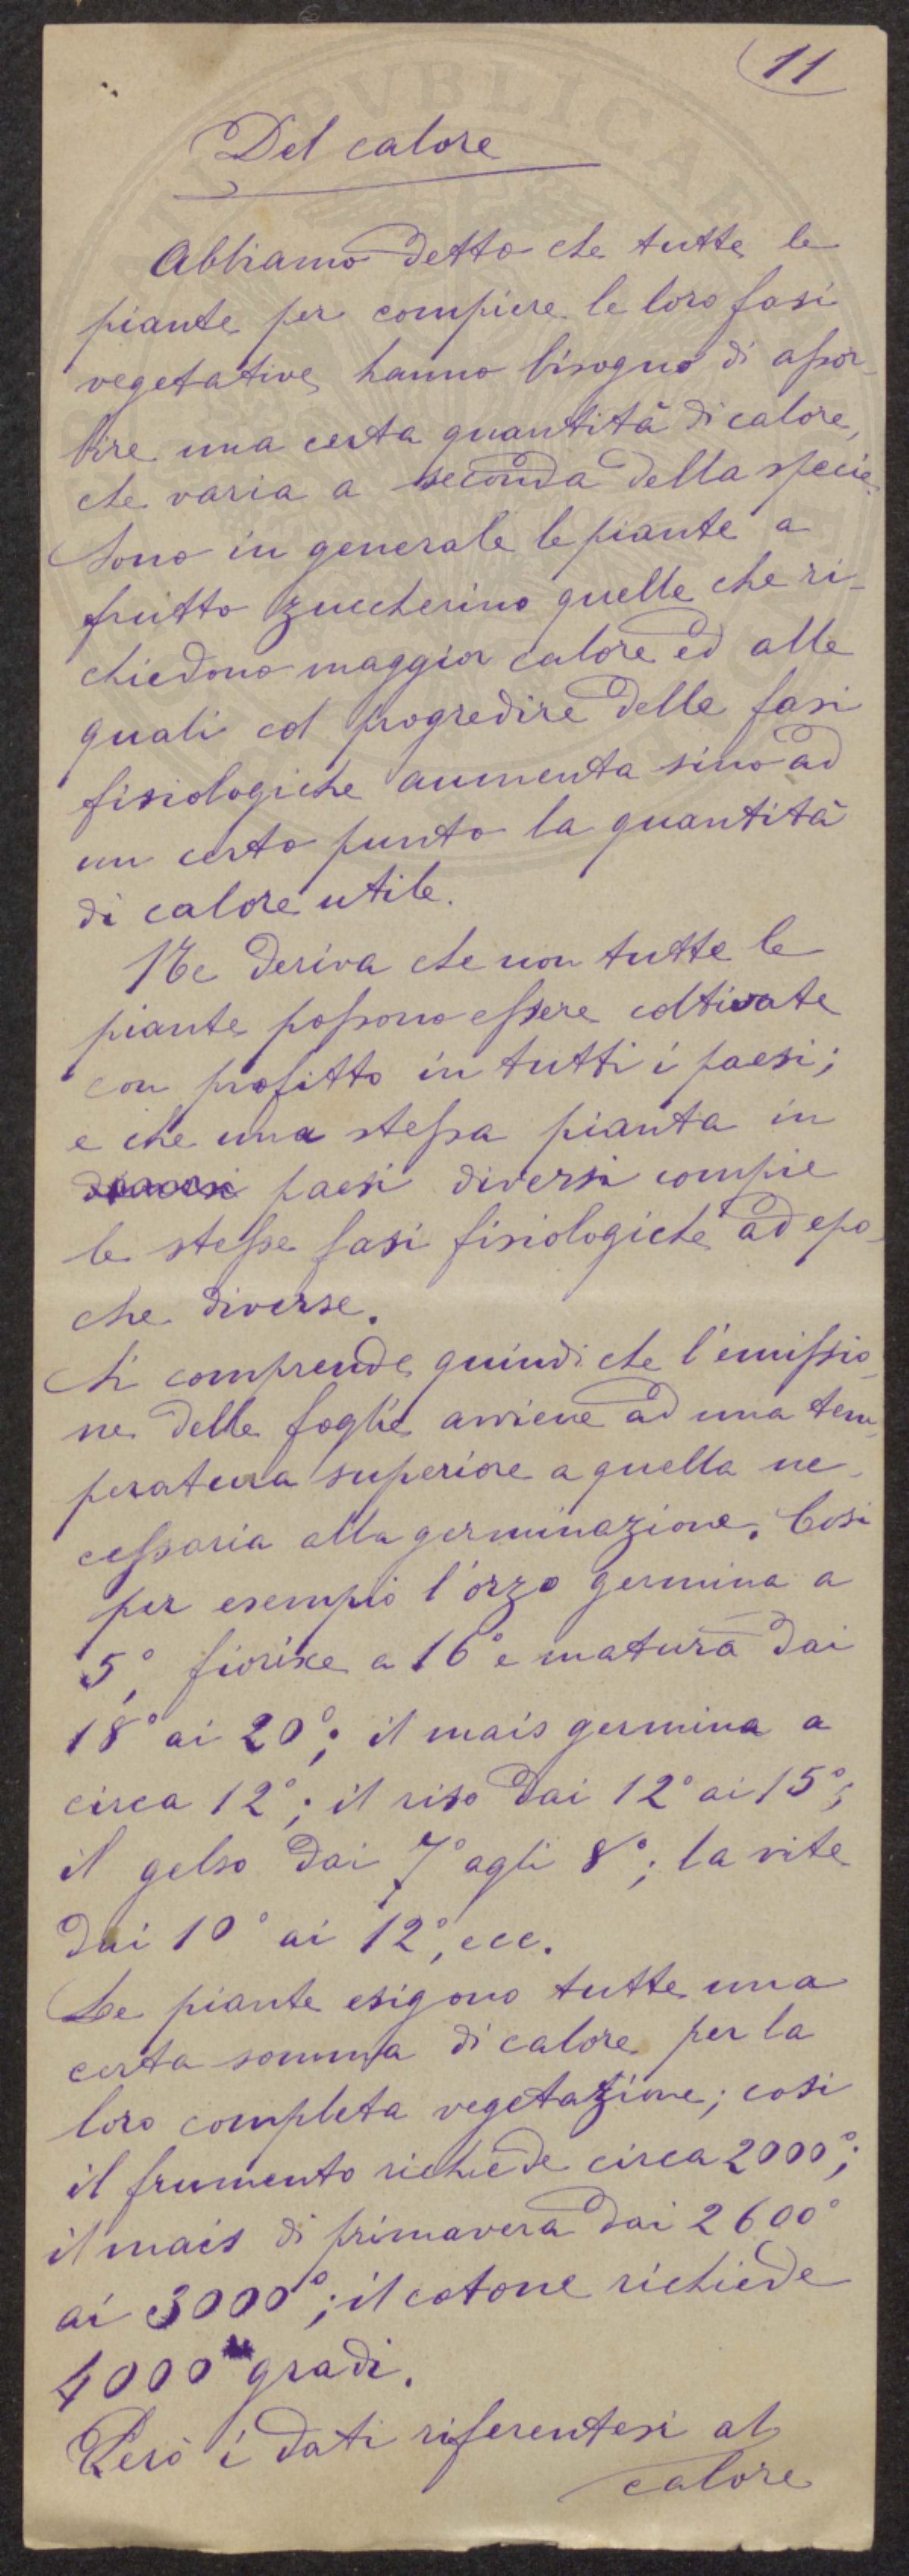 11
Del calore
Abbiamo detto che tutte le
piante per compiere le loro fasi
vegetative hanno bisogno di assor-
bire una certa quantità di calore,
che varia a seconda della specie.
Sono in generale le piante a
frutto zuccherino quelle che ri-
chiedono maggior calore ed alle
quali col progredire delle fasi
fisiologiche aumenta sino ad
un certo punto la quantità
di calore utile.
Ne deriva che non tutte le
piante possono essere coltivate
con profitto in tutti i paesi;
e che una stessa pianta in
paesi diversi compie
le stesse fasi fisiologiche ad epo-
che diverse.
Si comprende quindi che l'emissio-
ne delle foglie avviene ad una tem-
peratura superiore a quella ne-
cessaria alla germinazione. Così
per esempio l'orzo germina a
5°, fiorisce a 16° e matura dai
18° ai 20°; il mais germina a
circa 12°; il riso dai 12° ai 15°;
il gelso dai 7° agli 8°; la vite
dai 10° ai 12°, ecc.
Le piante esigono tutte una
certa somma di calore per la
loro completa vegetazione; così
il frumento richiede circa 2000°;
il mais di primavera dai 2600°
ai 3000°; il cotone richiede
4000 gradi.
Però i dati riferentesi al
calore